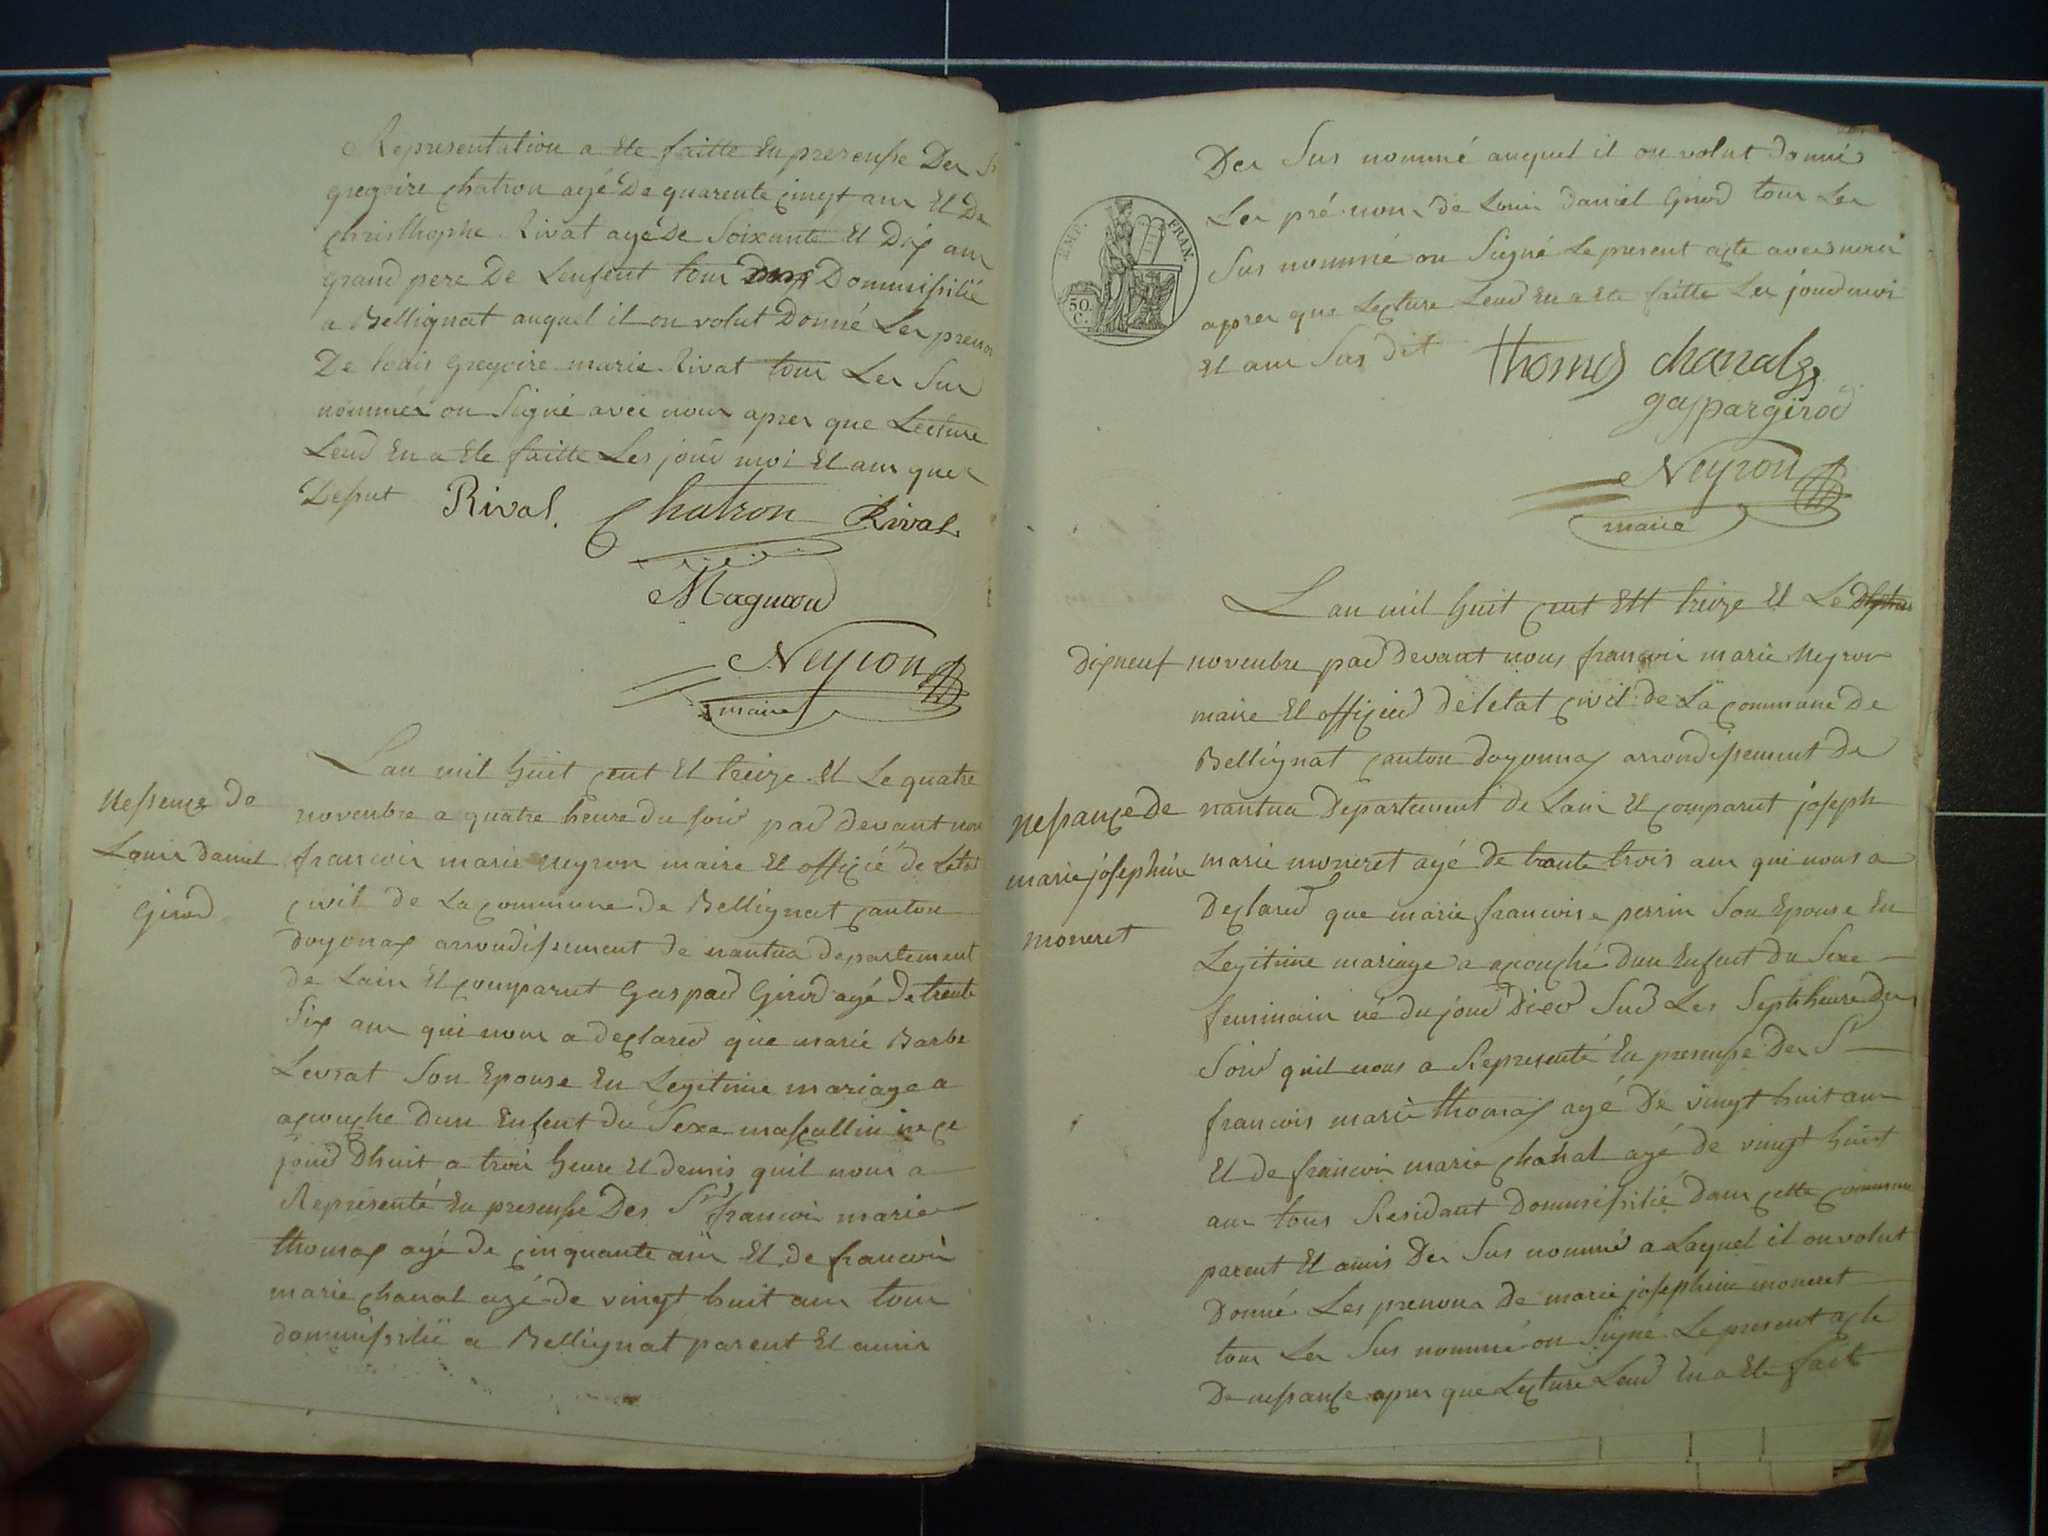 Representation a ete faitte En presensse Der Sr
gregoire Chatron agé De quarente cinqt anr Et De
christhophe Rivat agé De Soixante Et Dix anr
grand pere De Lenfent tour Domnissilié
a Bellignat auquel il on volut Donné Ler prenon
De louis gregoire marie Rivat tour Ler Sur
nommér on Signé avec nour aprer que Lecture
Leud En a Ete faitte Les joud moi Et anr quer
Dessut Rival. Chatron Rival.
Magniond
Neyron
maire
Lan mil huit cent Et treize Et Le quatre
Nessence de
Louir daniel
Girod
novenbre a quatre heure du soid pad devant nour
francoir marie neyron maire Et officié de Letat
civil de La commune de Bellignat canton
doyonax arrondissement de nantua departement
de Lain Et comparut Gaspad Girod agé de trente
Six anr qui nour a declared que marie Barbe
Levrat Son Epouse En Legitime mariage a
acouche dun Enfent du Sexe mascullin né ce
joud Dhuit a troir heure Et demis quil nour a
Représenté En presensse Des Srs francoir marie
thomax agé de cinquante anr Et de francoir
marie chanal agé de vingt huit anr tour
domnissilié a Bellignat parent Et amir
Der Sus nommé auquel il on volut donné
Ler pré nonr de Louir daniel Girod tour Ler
Sus nommé on Signé Le present acte avec nour
aprer que Lecture Leud En a Ete faitte Ler joud moi
Et anr Sus dit
EMP. FRAN.
50
C.
thomas chanal
gaspar girod
Neyron
maire
Lan mil huit cent Ett treize Et Le
dixneuf novenbre pad devant nous francoir marie Neyron
maire Et officied de letat civil de La commune De
Bellignat canton doyonnax arrondissement de
nantua Departement de Lain Et comparut joseph
nessance de
marie josephine
moneret
marie moneret agé de trante trois anr qui nous a
Declared que marie francoise perrin Son Epouse En
Legitime mariage a acouché dun Enfent du Sexe
femminin né du joud Dier Sud Les Sept heure du
Soid quil nous a Representé En presensse Der Sr
francois marie thomax agé De vingt huit anr
Et de francoir marie chanal agé de vingt huit
anr tous Residant Domnissilié danr cette commune
parent Et amis Der Sus nommé a Laquel il on volut
Donné Les prenonr de marie josephine moneret
tour Ler Sus nommé on Signé Le present acte
De nessance aprer que Lecture Leud En a Ete fait